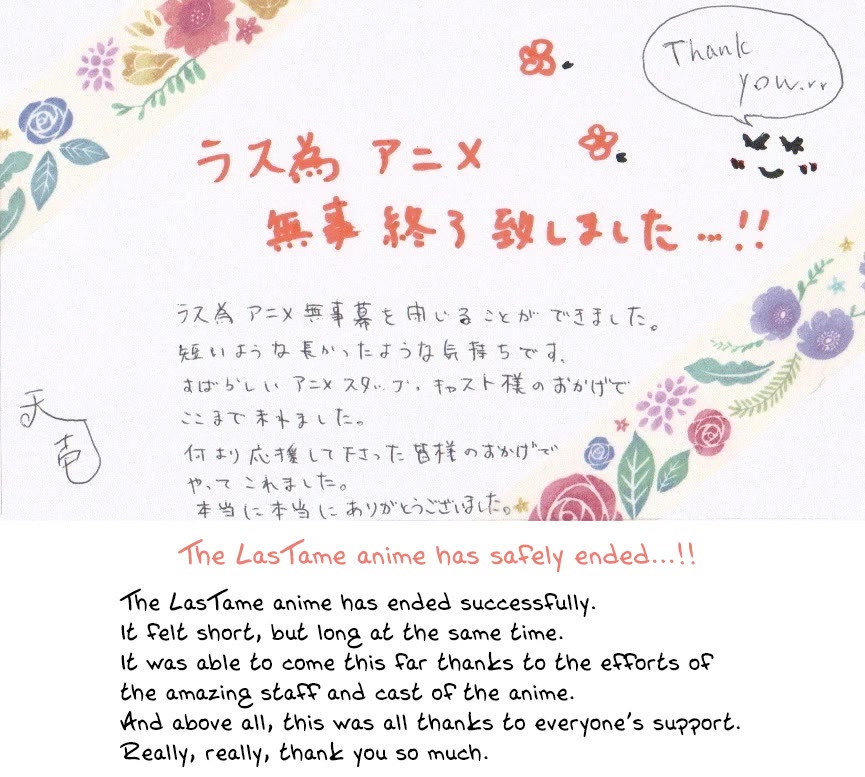 Thank
you...
ラス為 アニメ
無事 終了 致しました…!!
ラス為 アニメ 無事幕を閉じることができました。
短いような長かったような気持ちです、
すばらしい アニメスタッフ、キャスト様のおかげで
ここまで来れました。
何より応援して下さった皆様のおかげで
やってこれました。
本当に本当にありがとうございました。
The LasTame anime has safely ended...!!
The LasTame anime has ended successfully.
It felt short, but long at the same time.
It was able to come this far thanks to the efforts of
the amazing staff and cast of the anime.
And above all, this was all thanks to everyone's support.
Really, really, thank you so much.